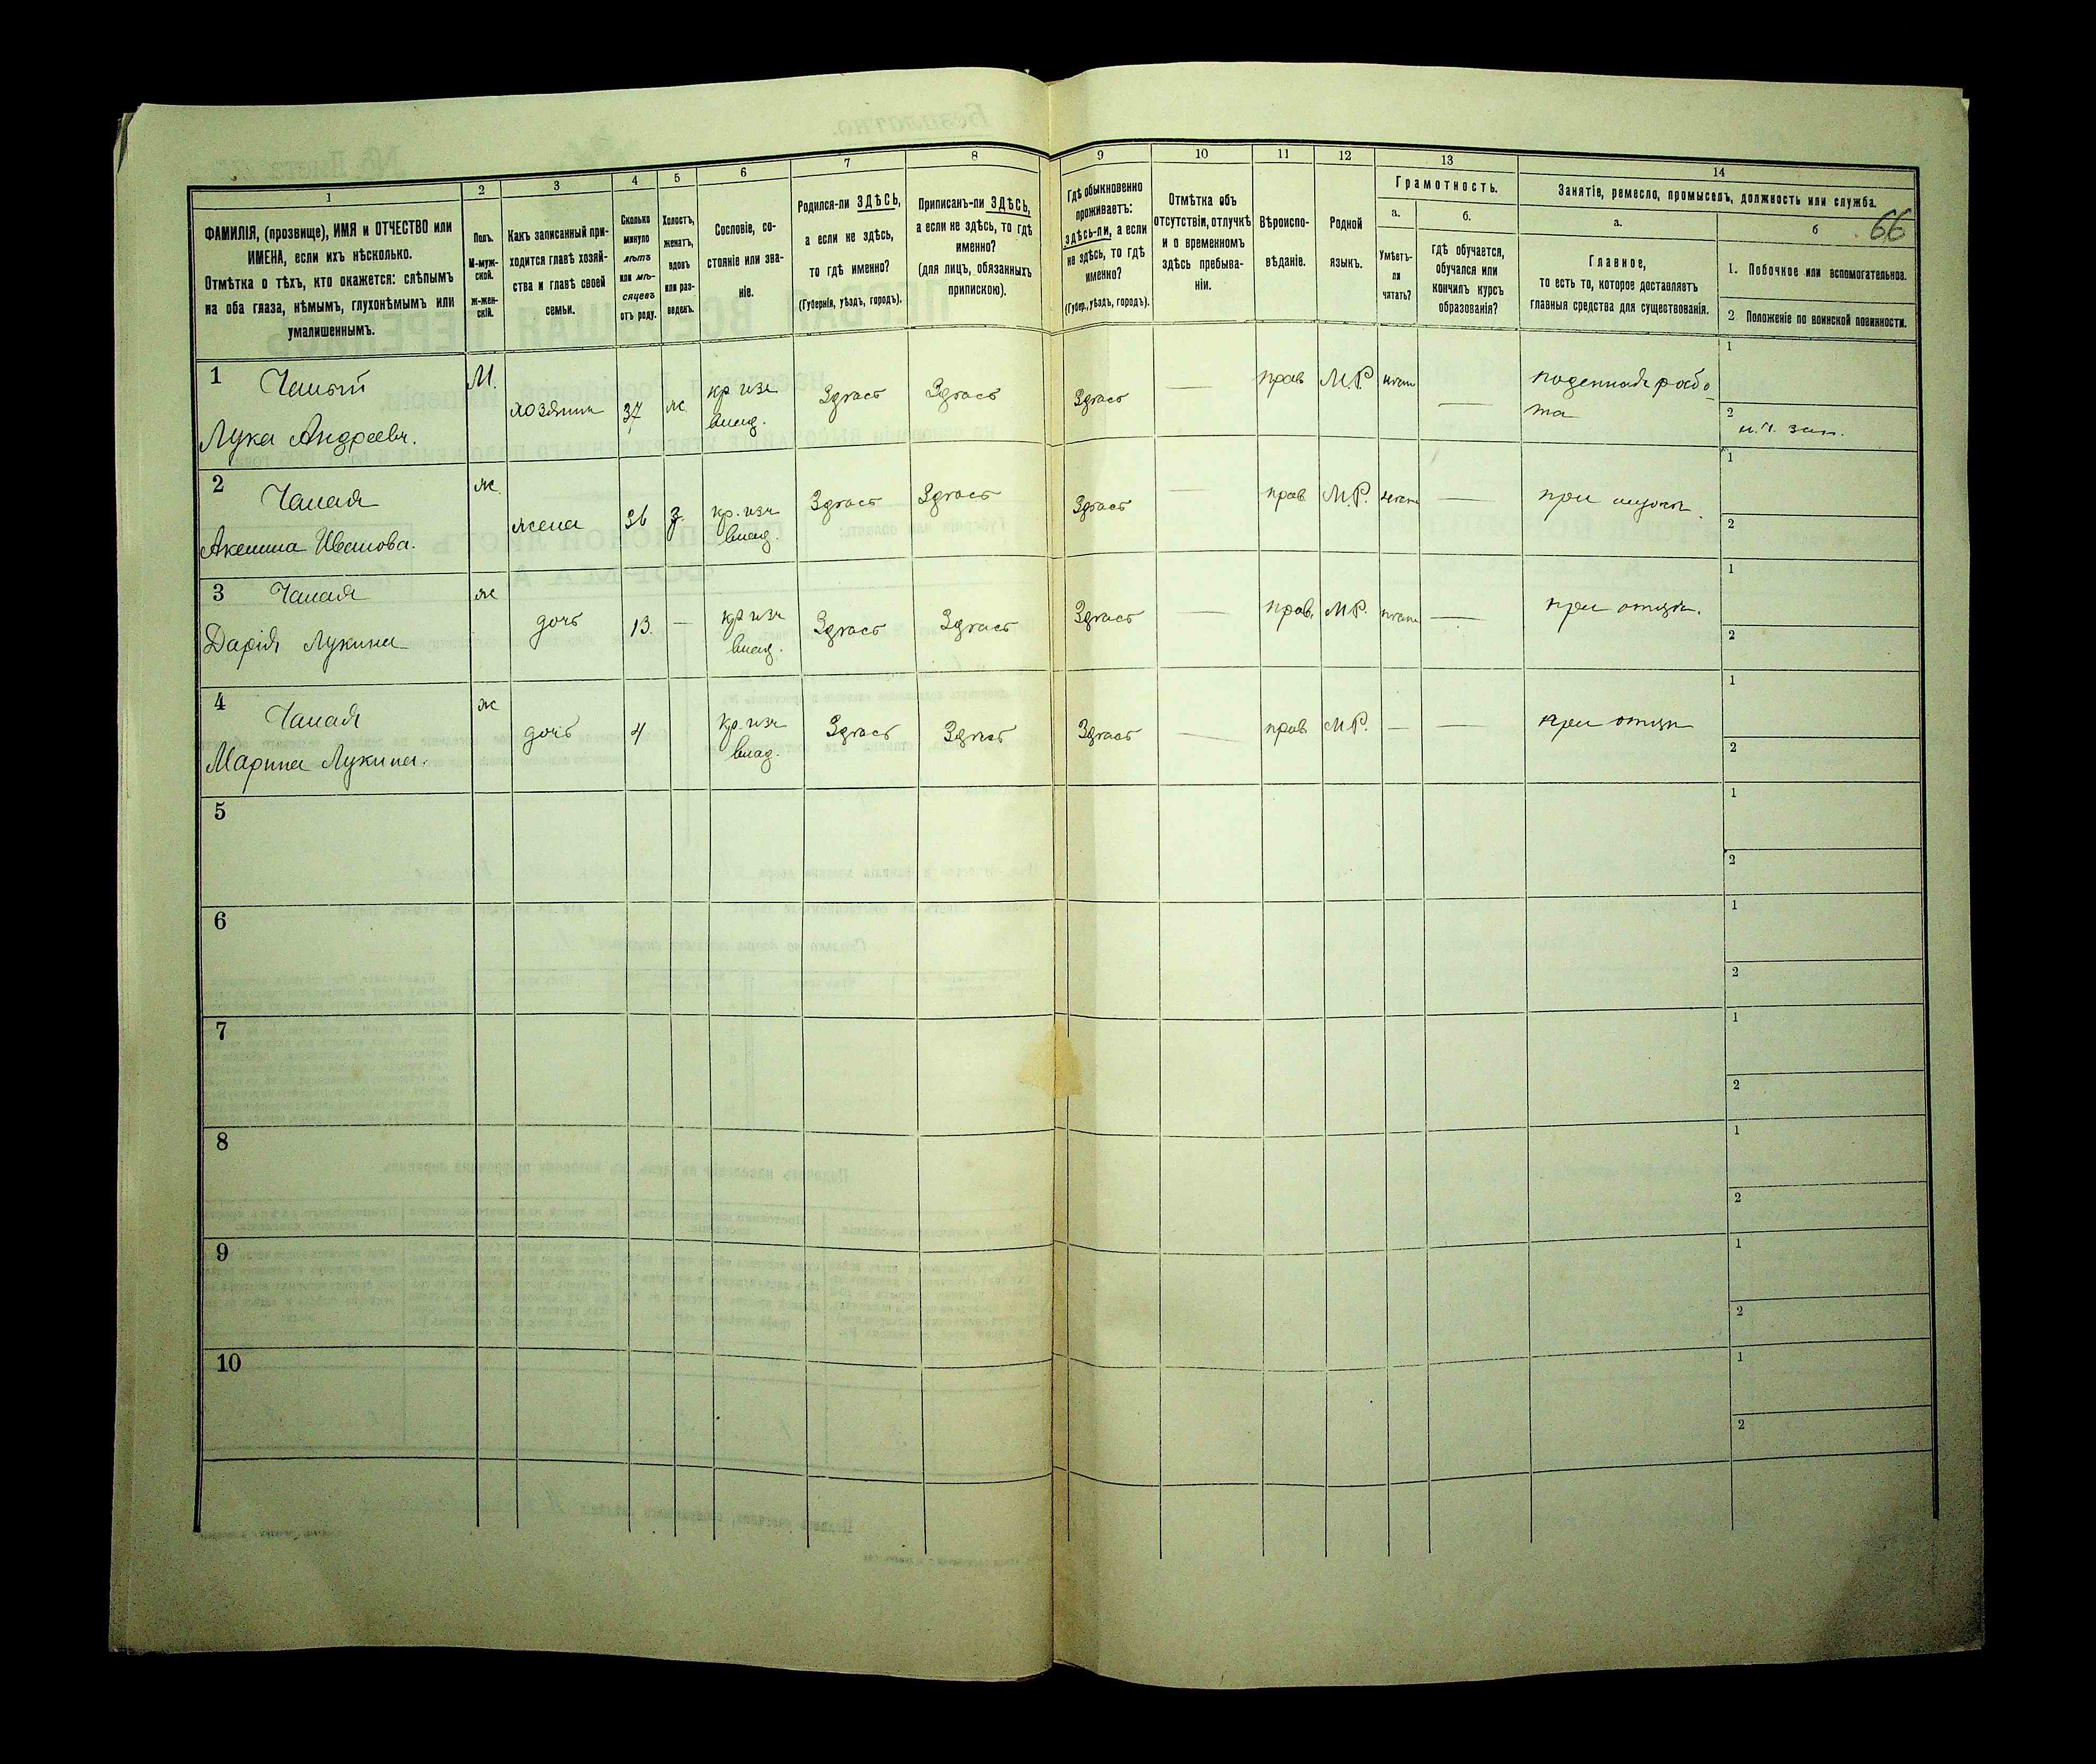 66
1
ФАМИЛІЯ, (прозвище), ИМЯ и ОТЧЕСТВО или
ИМЕНА, если ихъ нѣсколько.
Отмѣтка о тѣхъ, кто окажется: слѣпымъ
на оба глаза, нѣмымъ, глухонѣмымъ или
умалишеннымъ.
2
Полъ.
М-муж-
ской.
Ж-жен-
скій.
3
Какъ записанный при-
ходится главѣ хозяй-
ства и главѣ своей
семьи.
4
Сколько
минуло
лѣтъ
или мѣ-
сяцевъ
отъ роду.
5
Холостъ,
женатъ,
вдовъ
или раз-
веденъ.
6
Сословіе, со-
стояніе или зва-
ніе.
7
Родился-ли ЗДѢСЬ,
а если не здѣсь,
то гдѣ именно?
(Губернія, уѣздъ, городъ).
8
Приписанъ-ли ЗДѢСЬ,
а если не здѣсь, то гдѣ
именно?
(для лицъ, обязанныхъ
припискою).
9
Гдѣ обыкновенно
проживаетъ:
здѣсь-ли, а если
не здѣсь, то гдѣ
именно?
(Губер., уѣздъ, городъ).
10
Отмѣтка объ
отсутствіи, отлучкѣ
и о временномъ
здѣсь пребыва-
ніи.
11
Вѣроиспо-
вѣданіе.
12
Родной
языкъ.
13
Грамотность.
а.
Умѣетъ-
ли
читать?
б.
Гдѣ обучается,
обучался или
кончилъ курсъ
образованія?
14
Занятіе, ремесло, промыселъ, должность или служба.
а.
Главное,
то есть то, которое доставляетъ
главныя средства для существованія.
б
1. Побочное или вспомогательное.
2 Положеніе по воинской повинности.
1
Лука Андреевъ.
М.
хозяинъ
37
ж.
кр. изъ
влад.
Здѣсь
Здѣсь
Здѣсь
—
прав
М.Р.
нѣтъ
—
поденная рабо
та
1
2
2 Чалая
Акелина Иванова.
ж.
жена
36
з.
кр. изъ
влад.
Здѣсь
Здѣсь
Здѣсь
—
прав
М.Р.
нѣтъ
—
при мужѣ.
1
2
3 Чалая
Дарія Лукина
ж
дочь
13.
—
кр изъ
влад.
Здѣсь
Здѣсь
Здѣсь
—
прав.
М.Р.
нѣтъ
—
при отцѣ.
1
2
4 Чалая
Марина Лукина.
ж
дочь
4
кр. изъ
влад.
Здѣсь
Здѣсь
Здѣсь
—
прав
М.Р.
—
—
при отцѣ
1
2
5
1
2
6
1
2
7
1
2
8
1
2
9
1
2
10
1
2